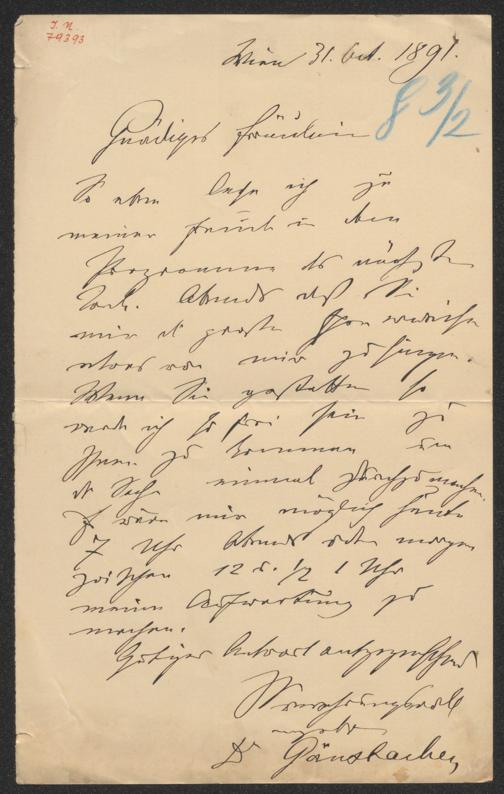 I. N.
79393
Wien 31. Oct. 1891.
8 3/2
Gnädiges Fräulein
So eben lese ich zu
meiner Freude in dem
Programme des nächsten
Tonk. Abends daß Sie
mir die große Ehre erweisen
etwas von mir zu singen.
Wenn Sie gestatten so
werde ich so frei sein zu
Ihnen zu kommen um
die Sache einmal durchzumachen.
Es wäre mir möglich heute
7 Uhr Abends oder morgen
zwischen 12 u. 1/2 1 Uhr
meine Aufwartung zu
machen.
Gütiger Antwort entgegensehend
Verehrungsvoll
ergeben
Dr Gänsbacher